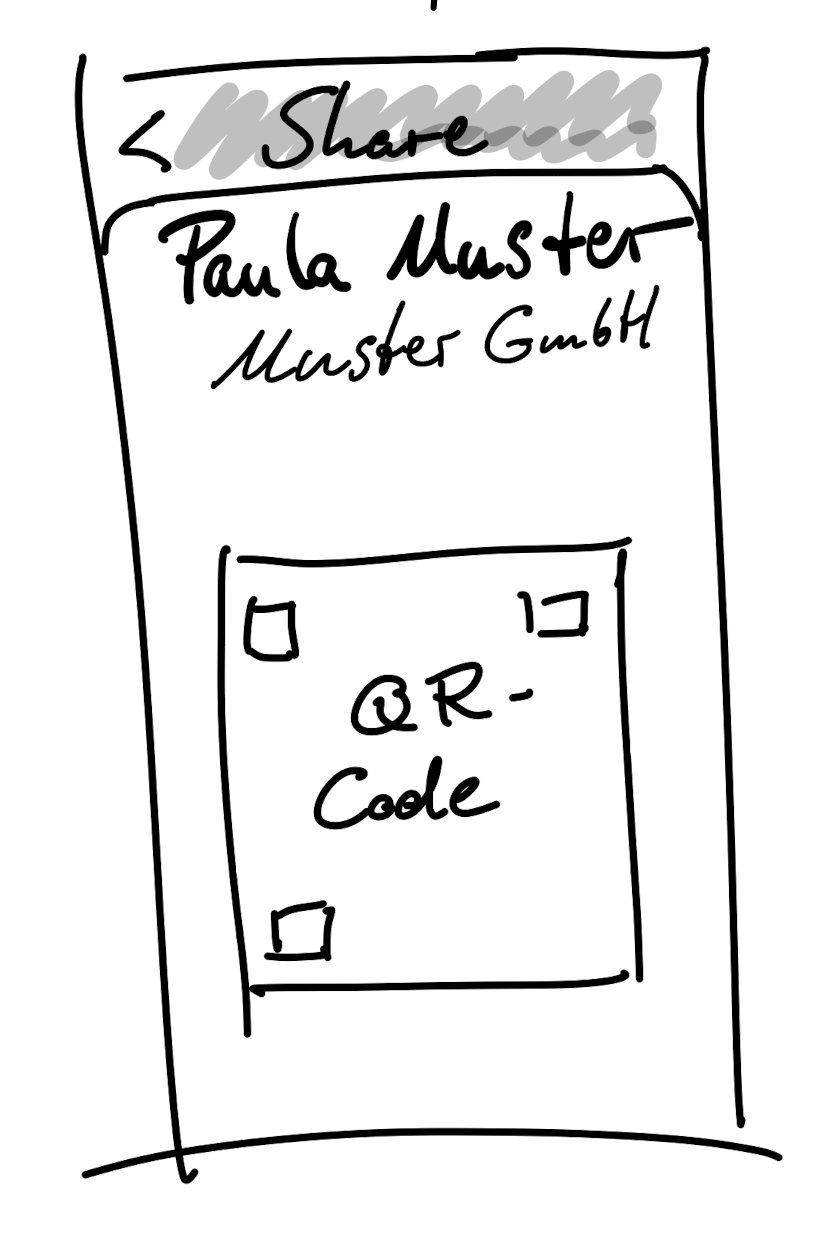 < Share
Paula Muster
Muster GmbH
QR-
Code